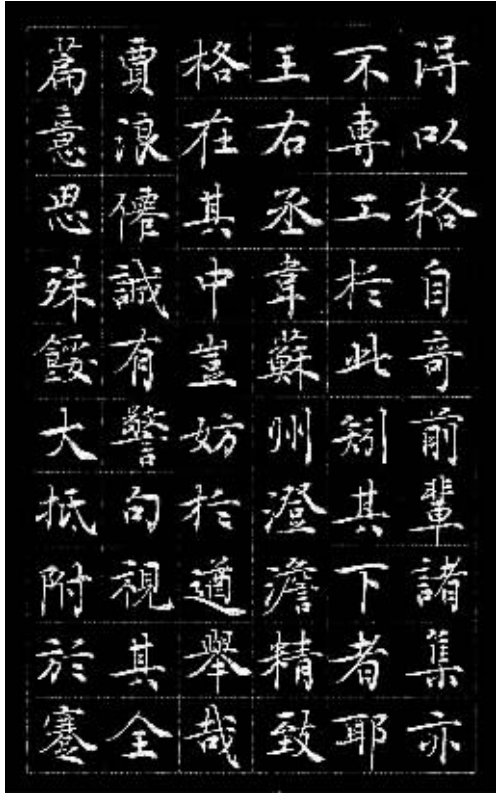 得以格自奇前輩諸集亦
不專工於此矧其下者耶
王右丞韋蘇州澄澹精致
格在其中豈妨於遒舉哉
賈浪僊誠有警句視其全
篇意思殊餒大抵附於蹇